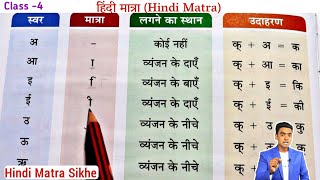 Class -4
हिंदी मात्रा (Hindi Matra)
स्वर मात्रा लगने का स्थान उदाहरण
अ - कोई नहीं क् + अ = क
आ ा व्यंजन के दाएँ क् + आ = का
इ ि व्यंजन के बाएँ क् + इ = कि
ई ी व्यंजन के दाएँ क् + ई = की
उ व्यंजन के नीचे क् + उ
ऊ व्यंजन के नीचे क्
ऋ व्यंजन के नीचे क्
Hindi Matra Sikhe